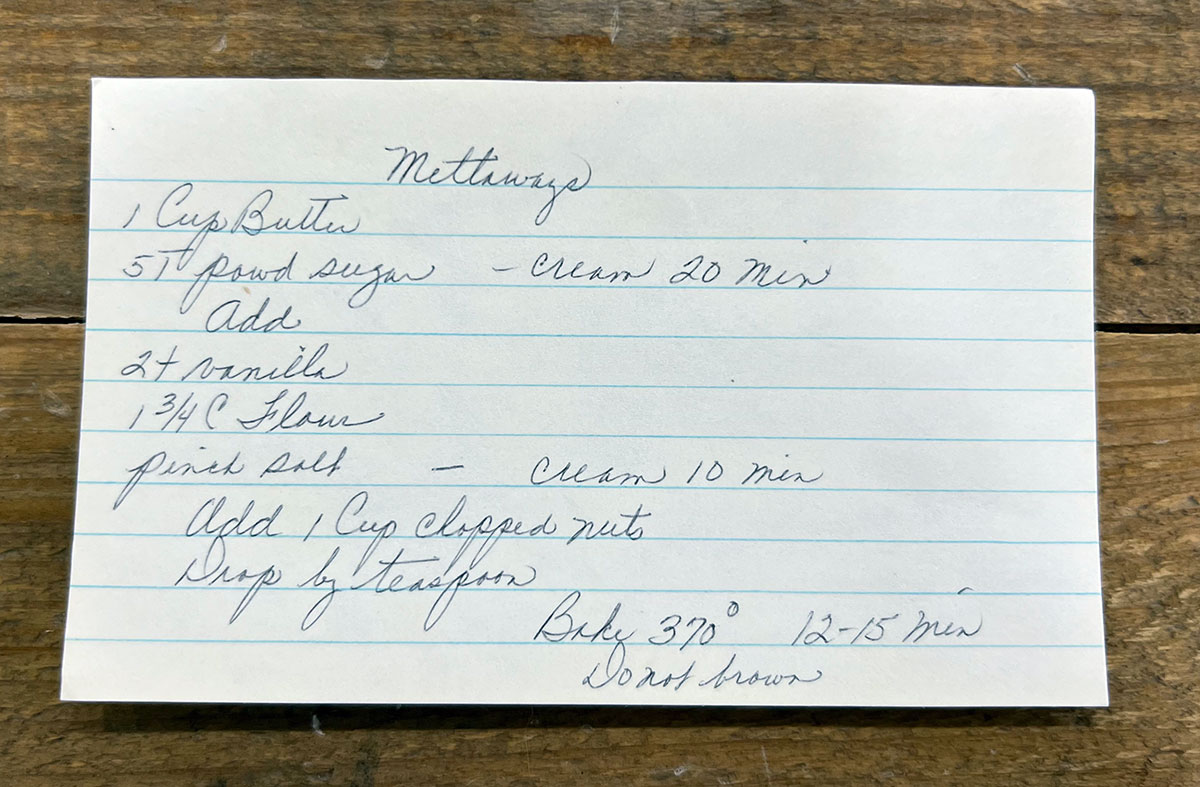 Meltaways
1 Cup Butter
5T powd sugar - cream 20 Min
Add
2t vanilla
1 3/4 C Flour
pinch salt - cream 10 min
Add 1 Cup chopped nuts
Drop by teaspoon
Bake 370° 12-15 Min
Do not brown